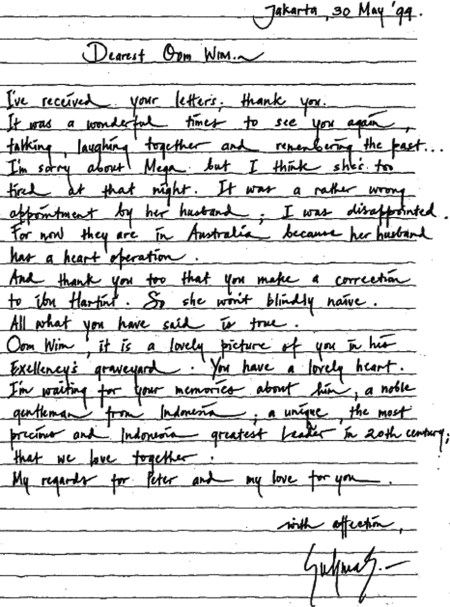 Jakarta, 30 May '94.
Dearest Oom Wim.
I've received your letters; thank you.
It was a wonderful times to see you again,
talking, laughing together and remembering the past...
I'm sorry about Mega. but I think she's too
tired at that night. It was a rather wrong
appointment by her husband; I was disappointed.
For now they are in Australia because her husband
has a heart operation.
And thank you too that you make a correction
to ibu Hartini. So she won't blindly naive.
All what you have said is true.
Oom Wim, it is a lovely picture of you in his
Exellency's graveyard. You have a lovely heart.
I'm waiting for your memories about him, a noble
gentleman from Indonesia; a unique, the most
precious and Indonesia greatest Leader in 20th century;
that we love together.
My regards for Peter and my love for you.
with affection,